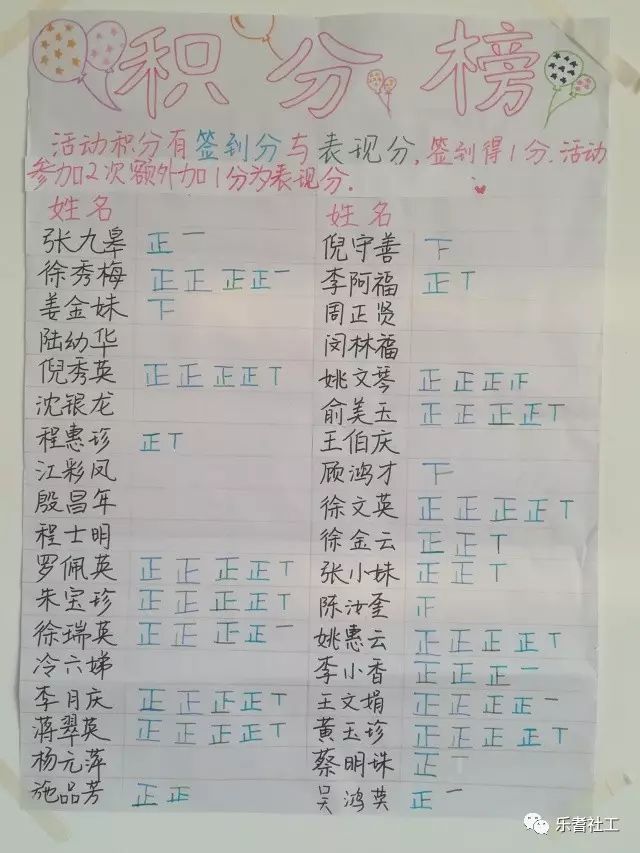 积分榜
活动积分有签到分与表现分,签到得1分.活动
参加2次额外加1分为表现分.
姓名 姓名
张九皋 正一 倪守善 下
徐秀梅 正正正正一 李阿福 正丅
姜金妹 下 周正贤
陆幼华 闵林福
倪秀英 正正正正丅 姚文琴 正正正正
沈银龙 俞美玉 正正正正丅
程惠珍 正丅 王伯庆
江彩凤 顾鸿才 下
殷昌年 徐文英 正正正正丅
程士明 徐金云 正正丅
罗佩英 正正正正丅 张小妹 正正丅
朱宝珍 正正正正丅 陈汝奎 正
徐瑞英 正正正正一 姚惠云 正正正正丅
冷六娣 李小香 正正正一
李月庆 正正正正丅 王文娟 正正正正一
蒋翠英 正正正正丅 黄玉珍 正正正正丅
杨元萍 蔡明珠 正丅
施品芳 正正 吴鸿英 正一
乐耆社工